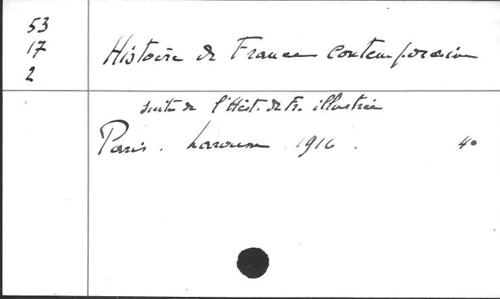 53
17
2
Histoire de France contemporaine
suite de l'Hist. de Fr. illustrée
Paris. Larousse 1916. 4°